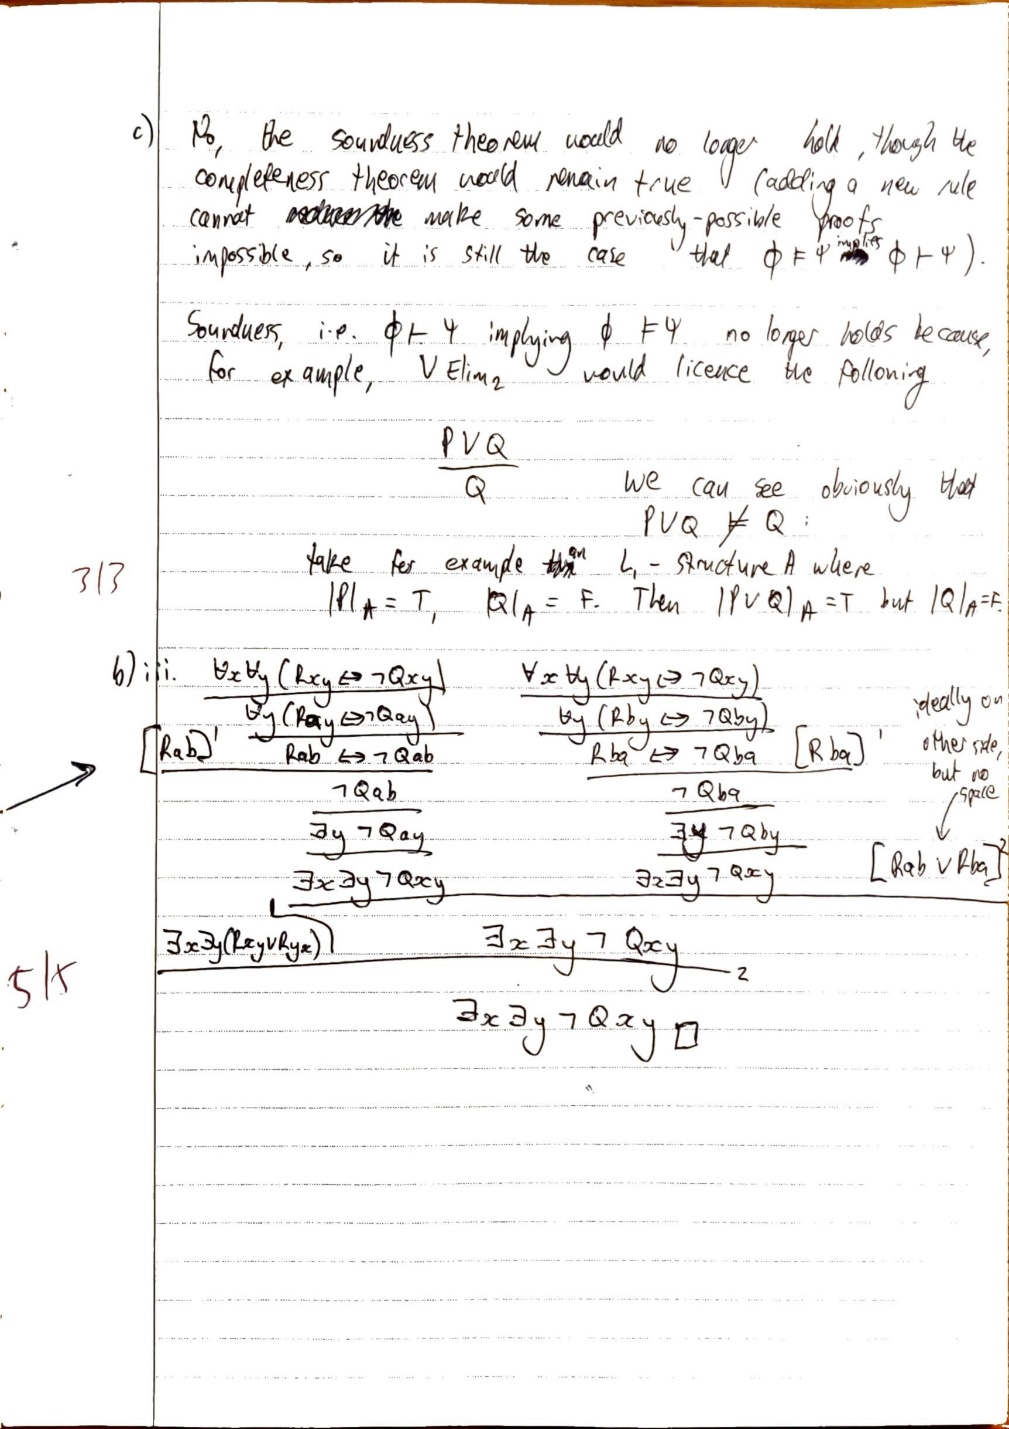 c) No, the soundness theorem would no longer hold, though the
completeness theorem would remain true (adding a new rule
cannot make some previously-possible proofs
impossible, so it is still the case that ϕ ⊨ Ψ implies ϕ ⊢ Ψ).
Soundness, i.e. ϕ ⊢ Ψ implying ϕ ⊨ Ψ no longer holds because,
for example, ∨ Elim₂ would licence the following
P ∨ Q
Q
We can see obviously that
P ∨ Q ⊭ Q :
take for example an L₁ - structure A where
3|3
|P|_A = T, |Q|_A = F. Then |P ∨ Q|_A = T but |Q|_A = F.
b) iii. ∀x∀y (Rxy ↔ ¬Qxy) ∀x ∀y (Rxy ↔ ¬Qxy)
∀y (Ray ↔ ¬Qay) ∀y (Rby ↔ ¬Qby)
[Rab]¹ Rab ↔ ¬Qab Rba ↔ ¬Qba [Rba]¹
ideally on
other side,
but no
space
¬Qab ¬Qba
∃y ¬Qay ∃y ¬Qby
∃x∃y ¬Qxy ∃x∃y ¬Qxy [Rab ∨ Rba]²
1
∃x∃y(Rxy∨Ryx) ∃x∃y ¬Qxy
2
5|5
∃x∃y ¬Qxy □